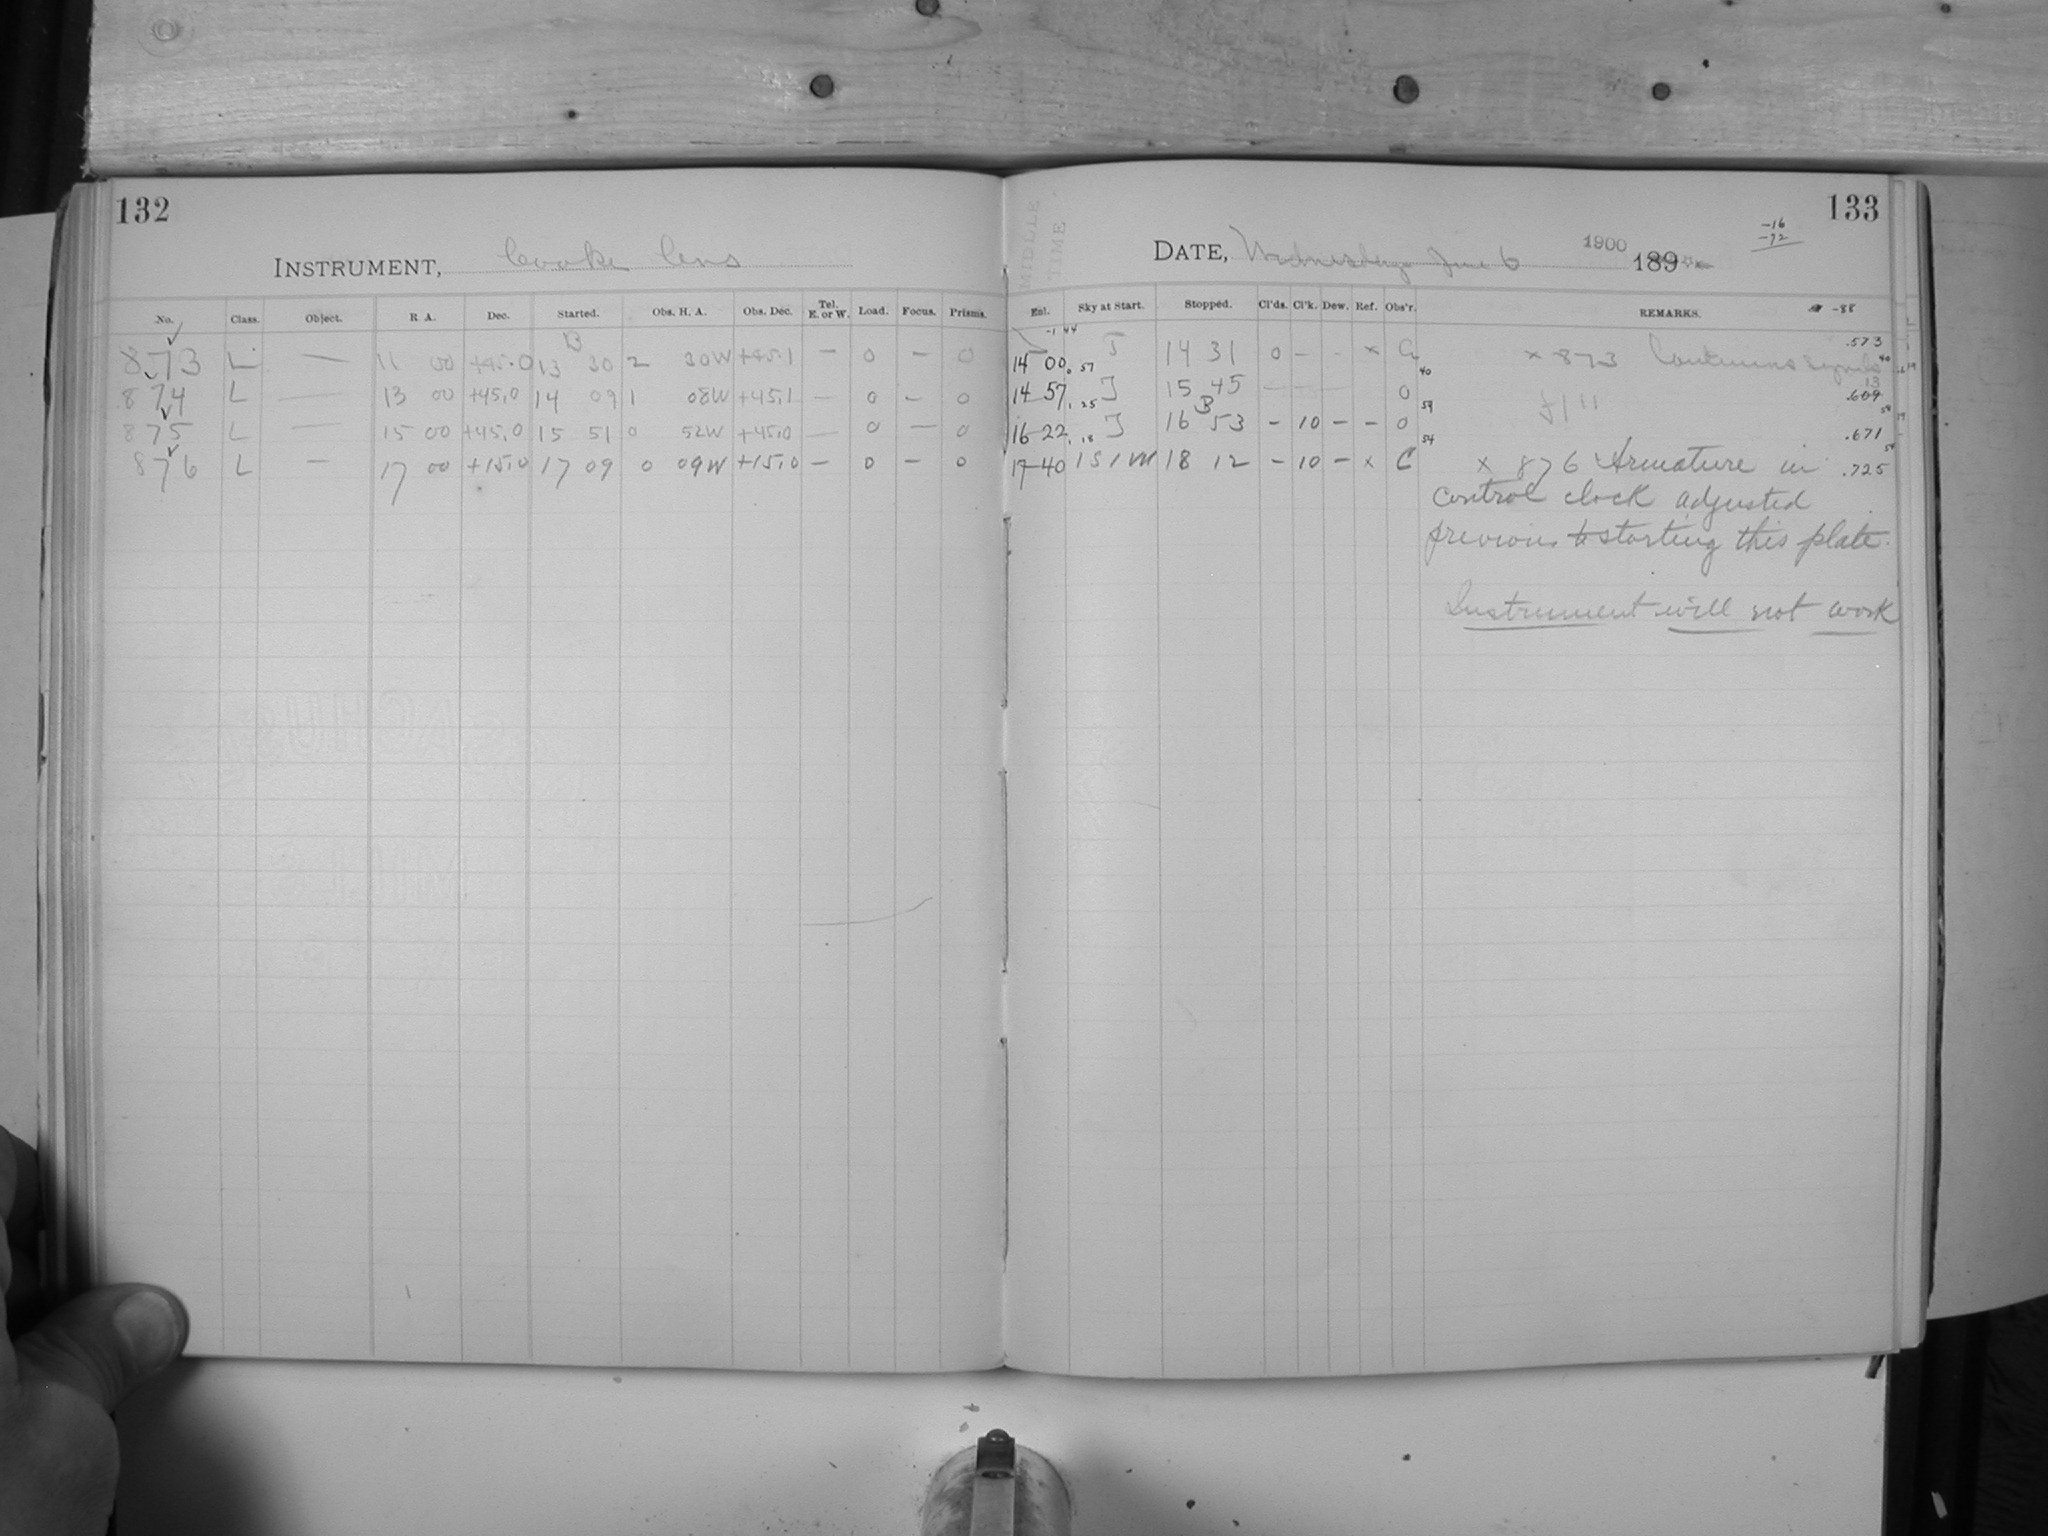 132
INSTRUMENT, Cooke lens
No. Class. Object. R. A. Dec. Started. Obs. H. A. Obs. Dec. Tel. E. or W. Load. Focus. Prisms.
873 L — 11 00 +45.0 13 30 2 30W +45.1 — 0 — 0
874 L — 13 00 +45.0 14 09 1 08W +45.1 — 0 — 0
875 L — 15 00 +45.0 15 51 0 52W +45.0 — 0 — 0
876 L — 17 00 +15.0 17 09 0 09W +15.0 — 0 — 0
133
-16
-72
MIDDLE TIME
DATE, Wednesday June 6 1900 189
Ent. Sky at Start. Stopped. Cl'ds. Cl'k. Dew. Ref. Obs'r. REMARKS. -88
-1 44
14 00 .57 J 14 31 0 — - × × 873 Continuous .573
14 57 .25 J 15 45 0 .609
16 22 .18 J 16 53 — 10 — — 0 .671
17 40 1S1M 18 12 — 10 — × C × 876 Armature in .725
control clock adjusted
previous to starting this plate.
Instrument will not work